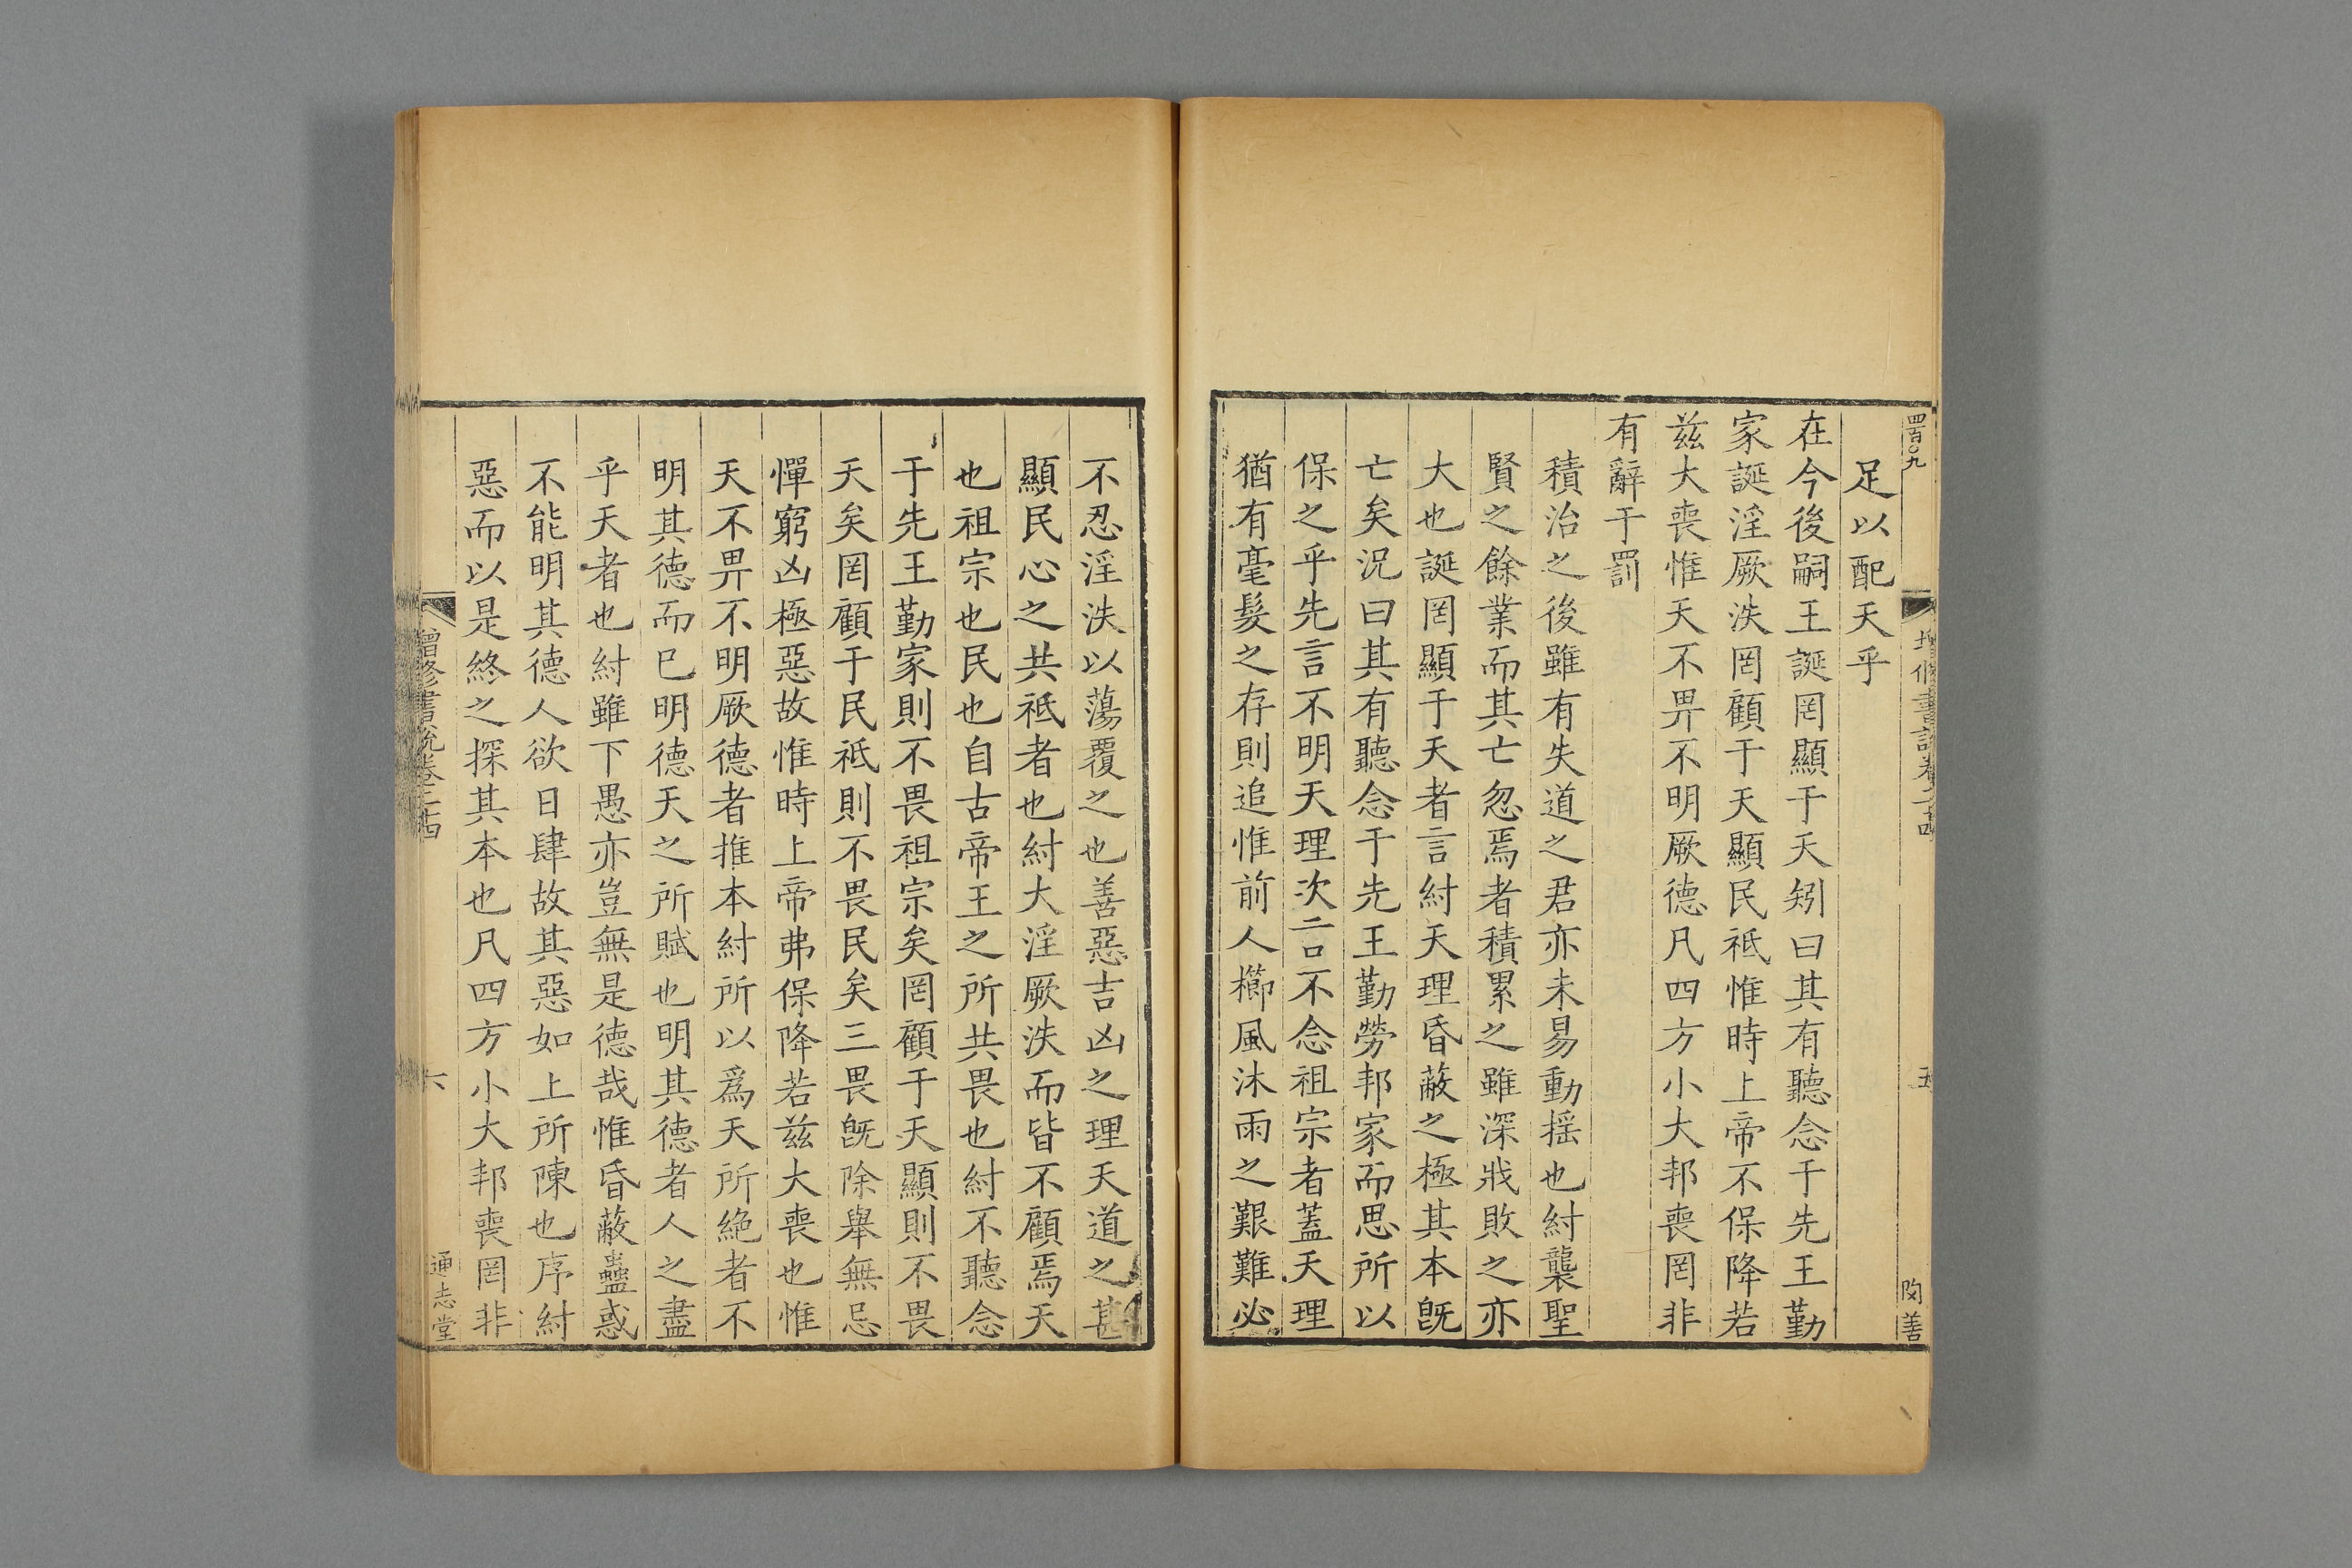 四百〇九
増修書說卷二十四
五
閔善
足以配天乎
在今後嗣王誕罔顯于天矧曰其有聽念于先王勤
家誕淫厥泆罔顧于天顯民祗惟時上帝不保降若
兹大喪惟天不畀不明厥德凡四方小大邦喪罔非
有辭于罰
積治之後雖有失道之君亦未易動揺也紂襲聖
賢之餘業而其亡忽焉者積累之雖深戕敗之亦
大也誕罔顯于天者言紂天理昏蔽之極其本旣
亡矣況曰其有聽念于先王勤勞邦家而思所以
保之乎先言不明天理次言不念祖宗者蓋天理
猶有毫髮之存則追惟前人櫛風沐雨之艱難必
不忍淫泆以蕩覆之也善惡吉凶之理天道之甚
顯民心之共祗者也紂大淫厥泆而皆不顧焉天
也祖宗也民也自古帝王之所共畏也紂不聽念
于先王勤家則不畏祖宗矣罔顧于天顯則不畏
天矣罔顧于民祗則不畏民矣三畏旣除舉無忌
憚窮凶極惡故惟時上帝弗保降若兹大喪也惟
天不畀不明厥德者推本紂所以爲天所絶者不
明其德而已明德天之所賦也明其德者人之盡
乎天者也紂雖下愚亦豈無是德哉惟昏蔽蠱惑
不能明其德人欲日肆故其惡如上所陳也序紂
惡而以是終之探其本也凡四方小大邦喪罔非
增修書說卷二十四
六
通志堂